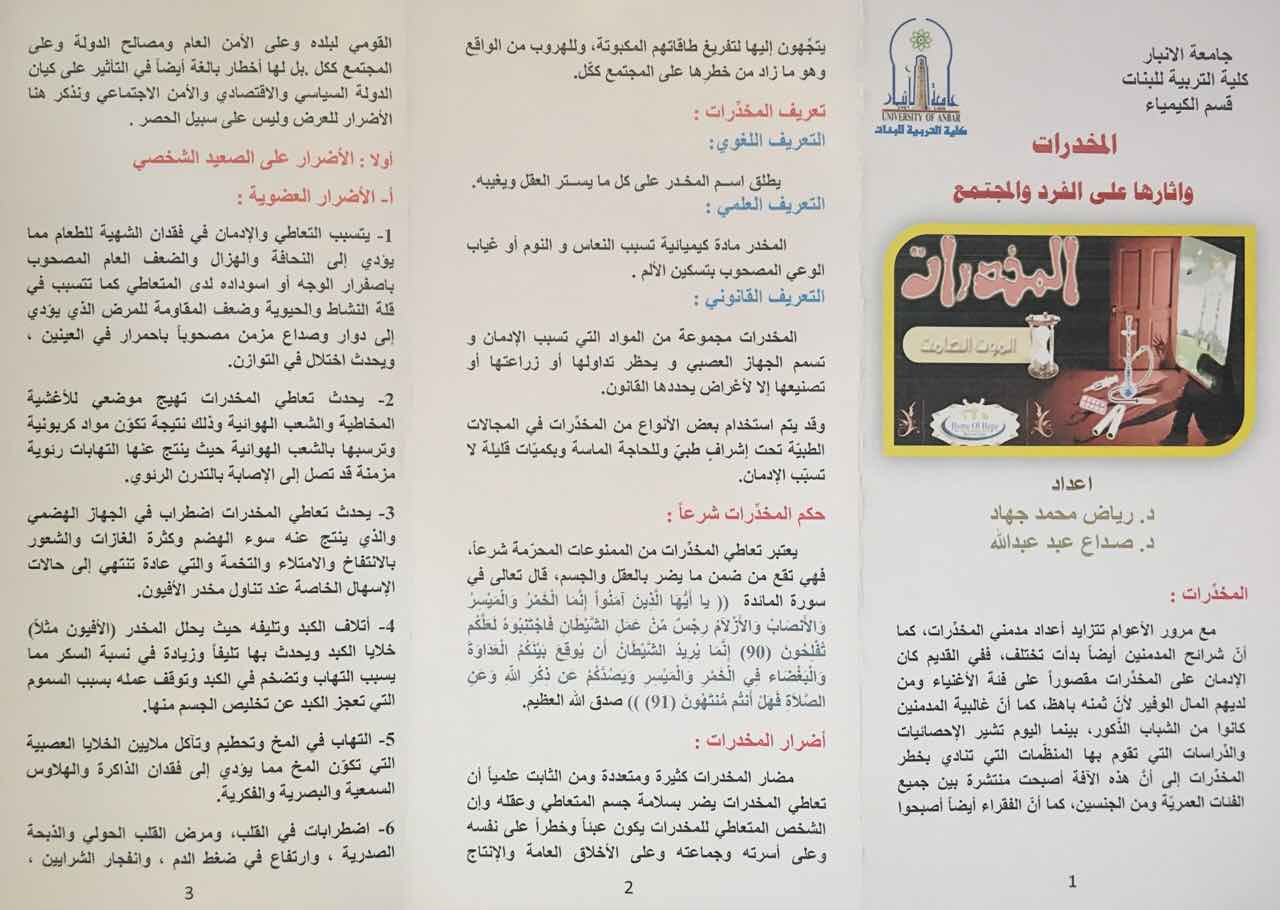 جامعة الانبار
كلية التربية للبنات
قسم الكيمياء
جامعة الانبار
UNIVERSITY OF ANBAR
كلية التربية للبنات
المخدرات
واثارها على الفرد والمجتمع
المخدرات
الموت الصامت
Home Of Hope
اعداد
د. رياض محمد جهاد
د. صداع عبد عبدالله
المخدّرات :
مع مرور الأعوام تتزايد أعداد مدمني المخدّرات، كما
أنّ شرائح المدمنين أيضاً بدأت تختلف، ففي القديم كان
الإدمان على المخدّرات مقصوراً على فئة الأغنياء ومن
لديهم المال الوفير لأنّ ثمنه باهظ، كما أنّ غالبية المدمنين
كانوا من الشباب الذّكور، بينما اليوم تشير الإحصائيات
والدّراسات التي تقوم بها المنظّمات التي تنادي بخطر
المخدّرات إلى أنّ هذه الآفة أصبحت منتشرة بين جميع
الفئات العمريّة ومن الجنسين، كما أنّ الفقراء أيضاً أصبحوا
1
يتجّهون إليها لتفريغ طاقاتهم المكبوتة، وللهروب من الواقع
وهو ما زاد من خطرها على المجتمع ككّل.
تعريف المخدّرات :
التعريف اللغوي:
يطلق اسم المخدر على كل ما يستر العقل ويغيبه.
التعريف العلمي :
المخدر مادة كيميائية تسبب النعاس و النوم أو غياب
الوعي المصحوب بتسكين الألم .
التعريف القانوني :
المخدرات مجموعة من المواد التي تسبب الإدمان و
تسمم الجهاز العصبي و يحظر تداولها أو زراعتها أو
تصنيعها إلا لأغراض يحددها القانون.
وقد يتم استخدام بعض الأنواع من المخدّرات في المجالات
الطبيّة تحت إشرافٍ طبيّ وللحاجة الماسة وبكميّات قليلة لا
تسبّب الإدمان.
حكم المخدّرات شرعاً :
يعتبر تعاطي المخدّرات من الممنوعات المحرّمة شرعاً،
فهي تقع من ضمن ما يضر بالعقل والجسم، قال تعالى في
سورة المائدة (( يا أَيُّهَا الَّذِينَ آمَنُواْ إِنَّمَا الْخَمْرُ وَالْمَيْسِرُ
وَالأَنصَابُ وَالأَزْلاَمُ رِجْسٌ مِّنْ عَمَلِ الشَّيْطَانِ فَاجْتَنِبُوهُ لَعَلَّكُمْ
تُفْلِحُونَ (90) إِنَّمَا يُرِيدُ الشَّيْطَانُ أَن يُوقِعَ بَيْنَكُمُ الْعَدَاوَةَ
وَالْبَغْضَاء فِي الْخَمْرِ وَالْمَيْسِرِ وَيَصُدَّكُمْ عَن ذِكْرِ اللّهِ وَعَنِ
الصَّلاَةِ فَهَلْ أَنتُم مُّنتَهُونَ (91) )) صدق الله العظيم.
أضرار المخدرات :
مضار المخدرات كثيرة ومتعددة ومن الثابت علمياً أن
تعاطي المخدرات يضر بسلامة جسم المتعاطي وعقله وإن
الشخص المتعاطي للمخدرات يكون عبئاً وخطراً على نفسه
وعلى أسرته وجماعته وعلى الأخلاق العامة والإنتاج
2
القومي لبلده وعلى الأمن العام ومصالح الدولة وعلى
المجتمع ككل .بل لها أخطار بالغة أيضاً في التأثير على كيان
الدولة السياسي والاقتصادي والأمن الاجتماعي ونذكر هنا
الأضرار للعرض وليس على سبيل الحصر .
أولا : الأضرار على الصعيد الشخصي
أ- الأضرار العضوية :
1- يتسبب التعاطي والإدمان في فقدان الشهية للطعام مما
يؤدي إلى النحافة والهزال والضعف العام المصحوب
باصفرار الوجه أو اسوداده لدى المتعاطي كما تتسبب في
قلة النشاط والحيوية وضعف المقاومة للمرض الذي يؤدي
إلى دوار وصداع مزمن مصحوباً باحمرار في العينين ،
ويحدث اختلال في التوازن.
2- يحدث تعاطي المخدرات تهيج موضعي للأغشية
المخاطية والشعب الهوائية وذلك نتيجة تكوّن مواد كربونية
وترسبها بالشعب الهوائية حيث ينتج عنها التهابات رئوية
مزمنة قد تصل إلى الإصابة بالتدرن الرئوي.
3- يحدث تعاطي المخدرات اضطراب في الجهاز الهضمي
والذي ينتج عنه سوء الهضم وكثرة الغازات والشعور
بالانتفاخ والامتلاء والتخمة والتي عادة تنتهي إلى حالات
الإسهال الخاصة عند تناول مخدر الأفيون.
4- أتلاف الكبد وتليفه حيث يحلل المخدر (الأفيون مثلاً)
خلايا الكبد ويحدث بها تليفاً وزيادة في نسبة السكر مما
يسبب التهاب وتضخم في الكبد وتوقف عمله بسبب السموم
التي تعجز الكبد عن تخليص الجسم منها.
5- التهاب في المخ وتحطيم وتآكل ملايين الخلايا العصبية
التي تكوّن المخ مما يؤدي إلى فقدان الذاكرة والهلاوس
السمعية والبصرية والفكرية.
6- اضطرابات في القلب، ومرض القلب الحولي والذبحة
الصدرية ، وارتفاع في ضغط الدم ، وانفجار الشرايين ،
3